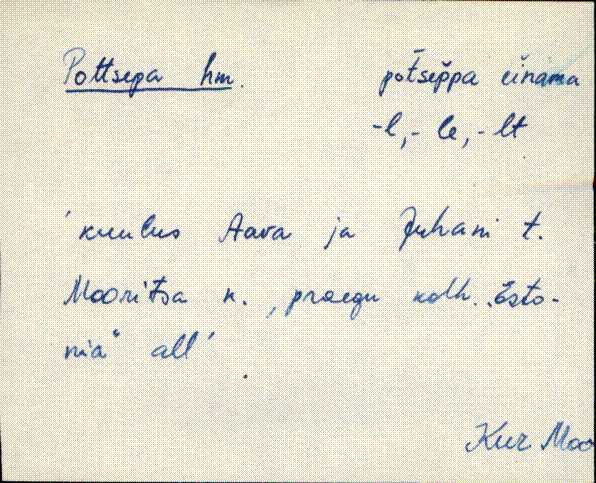 Pottsepa hm. pot̄sep̆pa ein̆ama
-l, - le, - lt
'kuulus Aava ja Juhani t.
Mooritsa k., praegu kolh. „Esto-
nia" all'
Kur Moo